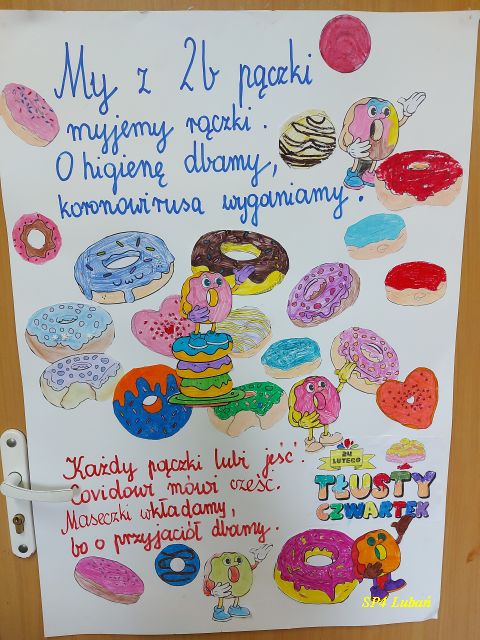 My z 2b pączki
myjemy rączki.
O higienę dbamy,
koronowirusa wyganiamy.
Każdy pączki lubi jeść.
Covidowi mówi cześć.
Maseczki wkładamy,
bo o przyjaciół dbamy.
24
LUTEGO
TŁUSTY
CZWARTEK
SP4 Lubań